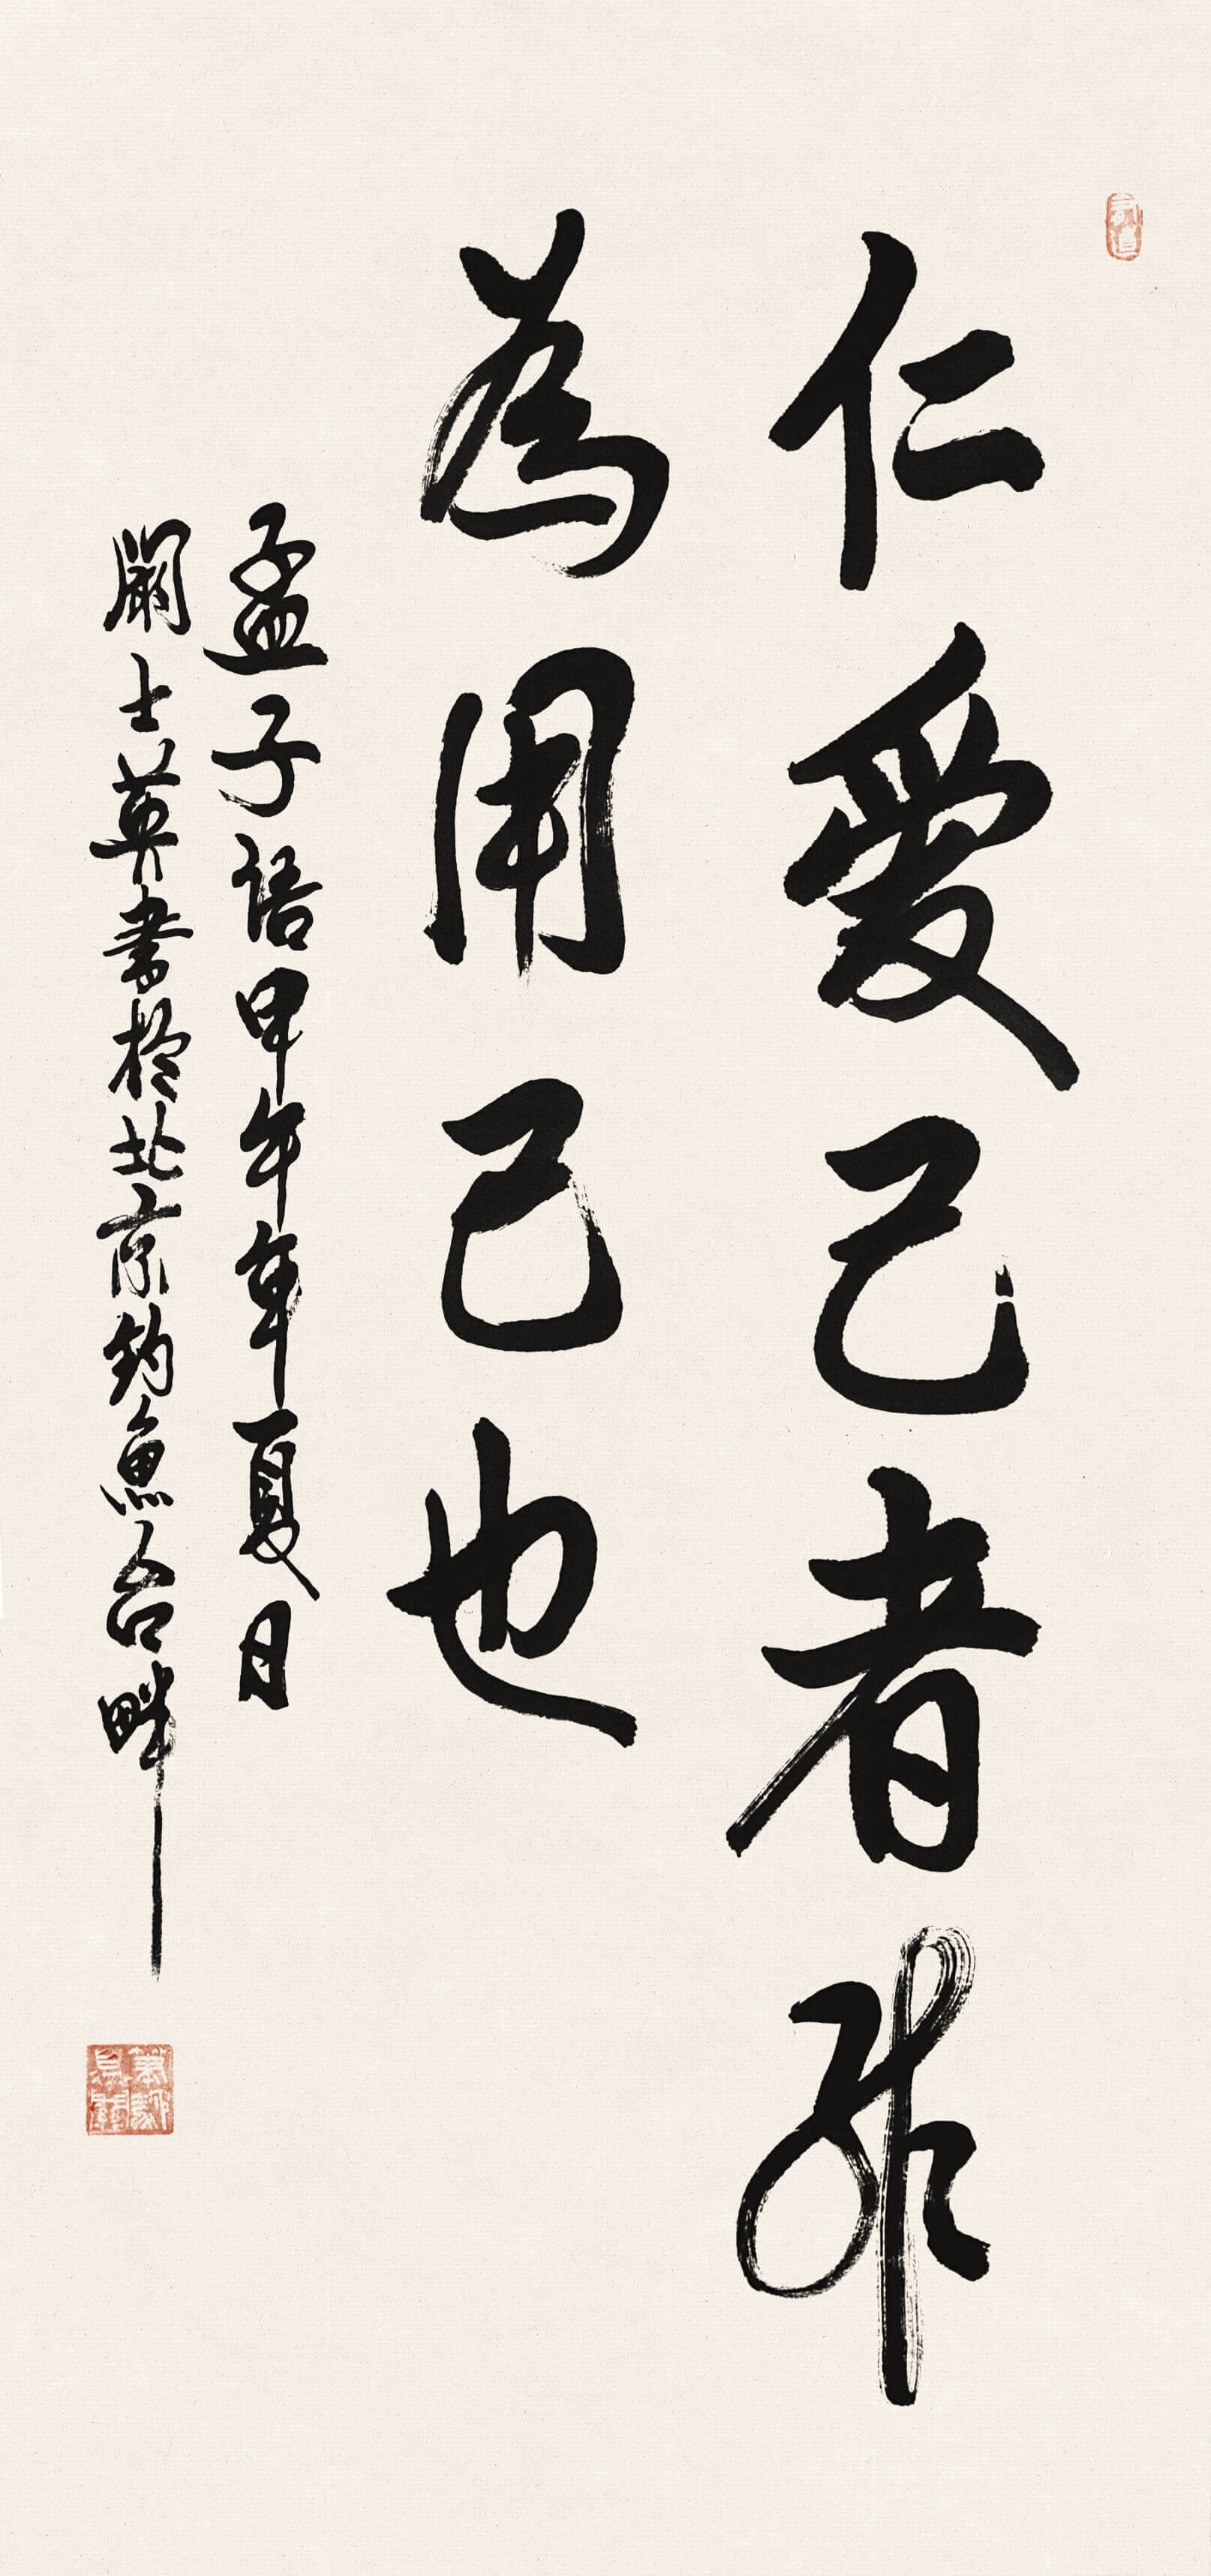 仁愛己者非
為用己也
孟子語甲午年夏日
闞士英書於北京釣魚台畔